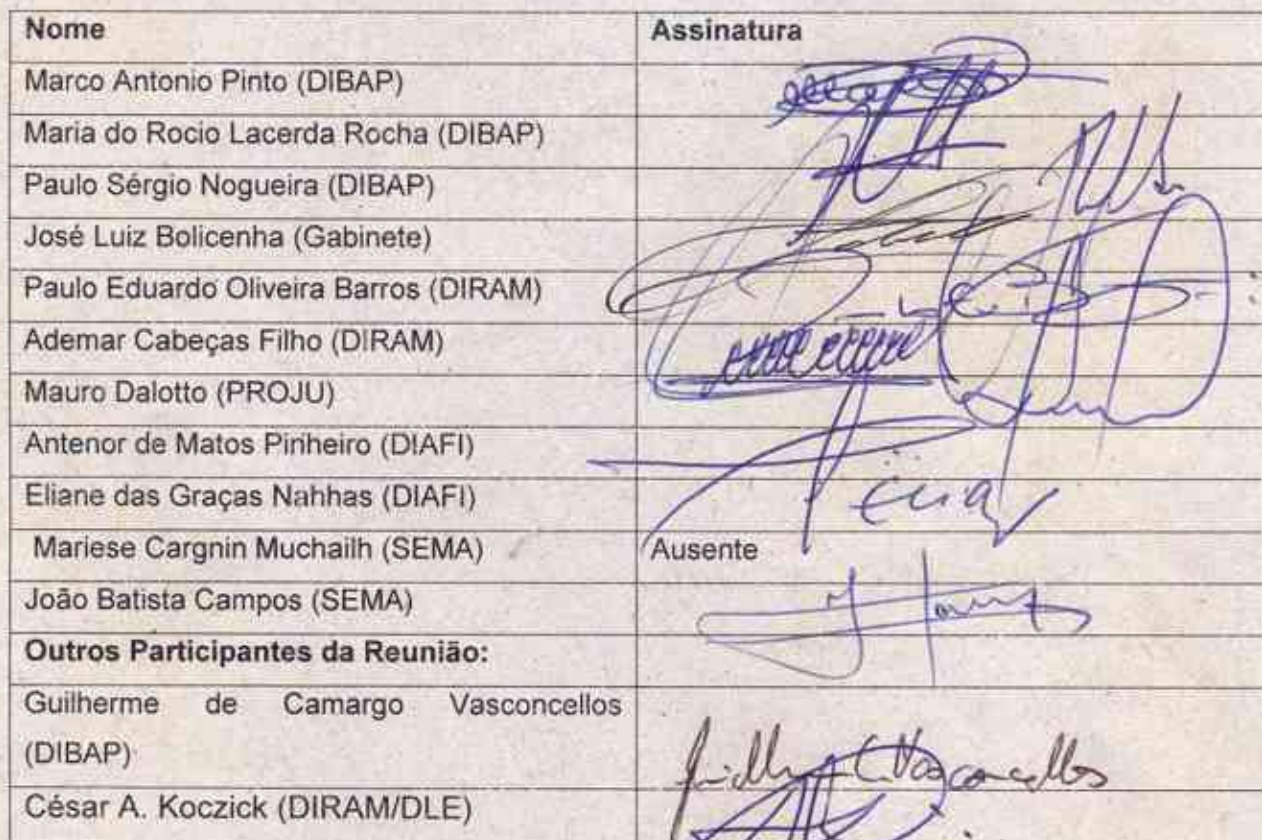 Nome Assinatura
Marco Antonio Pinto (DIBAP)
Maria do Rocio Lacerda Rocha (DIBAP)
Paulo Sérgio Nogueira (DIBAP)
José Luiz Bolicenha (Gabinete)
Paulo Eduardo Oliveira Barros (DIRAM)
Ademar Cabeças Filho (DIRAM)
Mauro Dalotto (PROJU)
Antenor de Matos Pinheiro (DIAFI)
Eliane das Graças Nahhas (DIAFI)
Mariese Cargnin Muchailh (SEMA) Ausente
João Batista Campos (SEMA)
Outros Participantes da Reunião:
Guilherme de Camargo Vasconcellos
(DIBAP)
César A. Koczick (DIRAM/DLE)